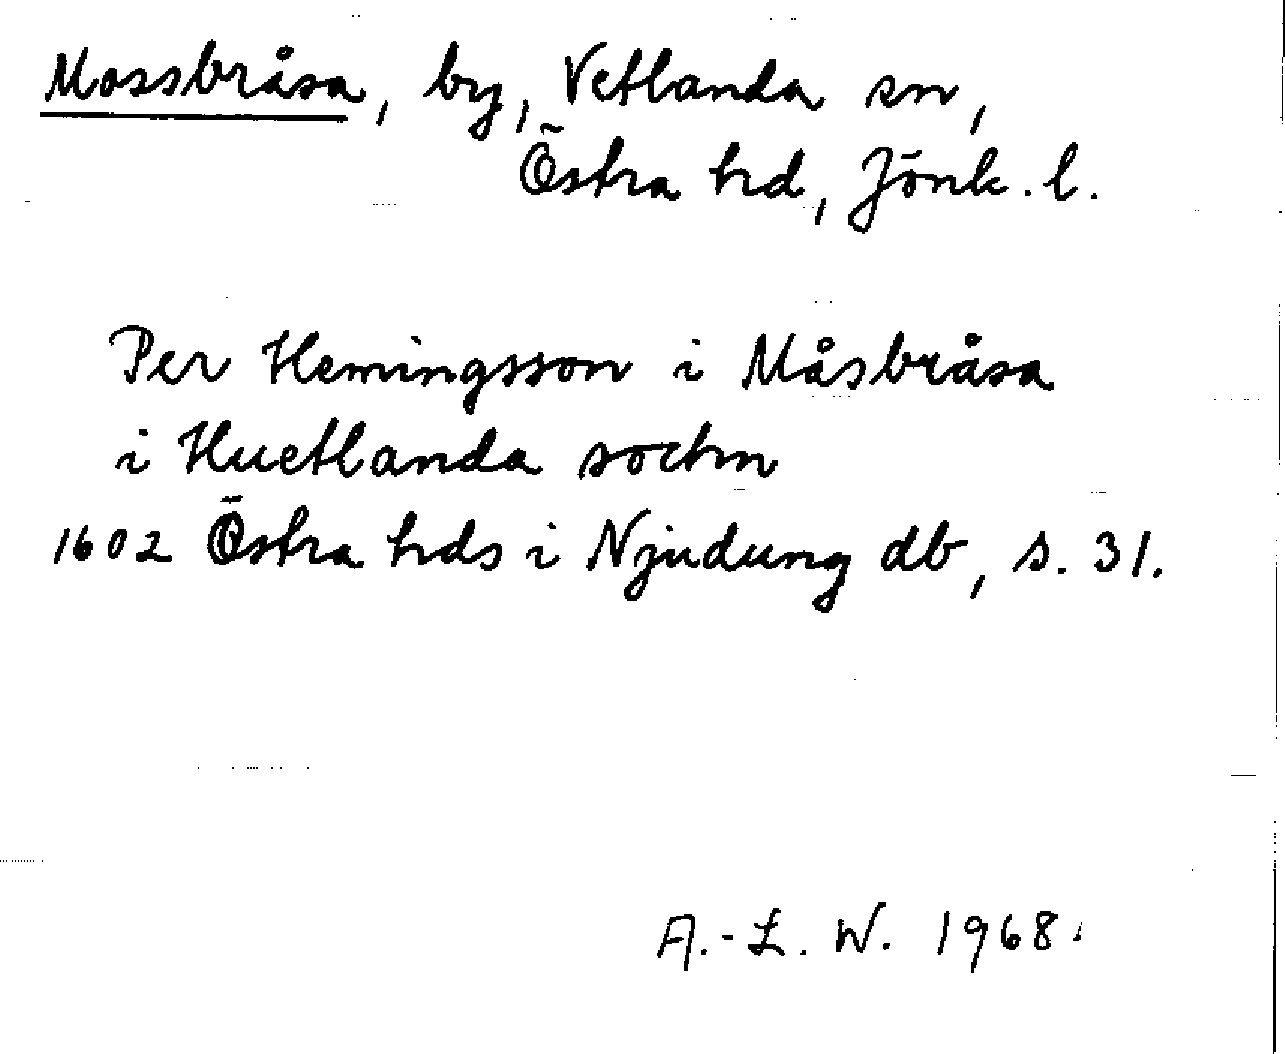 Mossbråsa, by, Vetlanda sn,
Östra hd, Jönk. l.
Per Hemingsson i Måsbråsa
i Huetlanda sochn
1602 Östra hds i Njudung db, s. 31.
A.-L. W. 1968.